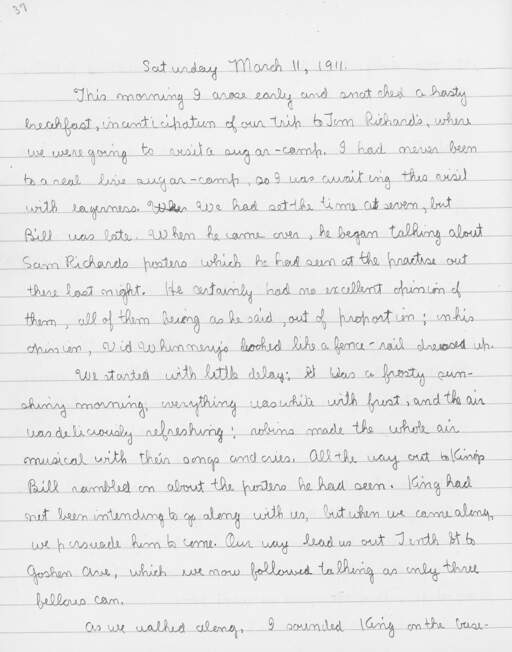 37
Saturday March 11, 1911.
This morning I arose early and snatched a hasty
breakfast, in anticipation of our trip to Jim Richards, where
we were going to visit a sugar-camp. I had never been
to a real live sugar-camp, so I was awaiting this visit
with eagerness. We had set the time at seven, but
Bill was late. When he came over, he began talking about
Sam Richards posters which he had seen at the practise out
there last night. He certainly had no excellent opinion of
them, all of them being as he said, out of proportion; in his
opinion, Vid Whinnery's looked like a fence-rail dressed up.
We started with little delay; it was a frosty sun-
shiny morning, everything was white with frost, and the air
was deliciously refreshing; robins made the whole air
musical with their songs and cries. All the way out to King's
Bill rambled on about the posters he had seen. King had
not been intending to go along with us, but when we came along,
we persuade him to come. Our way lead us out Tenth St to
Goshen Ave, which we now followed talking as only three
fellows can.
As we walked along, I sounded King on the base-